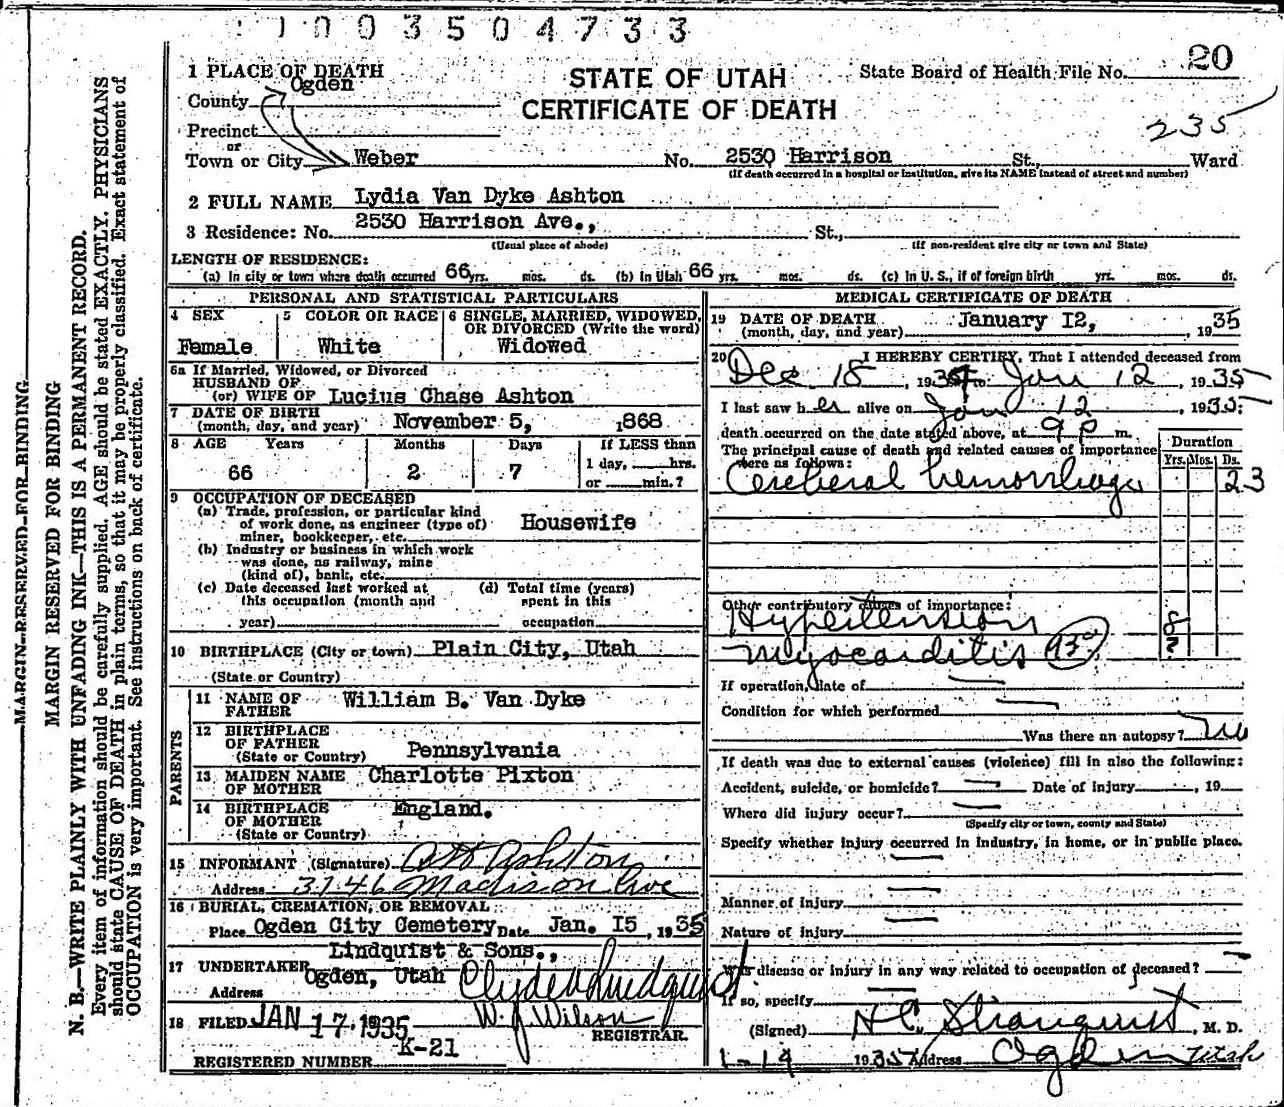 1003504733
20
1 PLACE OF DEATH
STATE OF UTAH
State Board of Health File No.
Ogden
County
CERTIFICATE OF DEATH
235
Precinct
or
Town or City Weber No. 2530 Harrison St., Ward
(If death occurred in a hospital or institution, give its NAME instead of street and number)
2 FULL NAME Lydia Van Dyke Ashton
3 Residence: No. 2530 Harrison Ave., St.,
(Usual place of abode) (If non-resident give city or town and State)
LENGTH OF RESIDENCE:
(a) In city or town where death occurred 66 yrs. mos. ds. (b) In Utah 66 yrs. mos. ds. (c) In U. S., if of foreign birth yrs. mos. ds.
PERSONAL AND STATISTICAL PARTICULARS
4 SEX 5 COLOR OR RACE 6 SINGLE, MARRIED, WIDOWED, OR DIVORCED (Write the word)
Female White Widowed
6a If Married, Widowed, or Divorced
HUSBAND OF
(or) WIFE OF Lucius Chase Ashton
7 DATE OF BIRTH
(month, day, and year) November 5, 1868
8 AGE Years Months Days If LESS than
66 2 7 1 day, hrs.
or min.?
9 OCCUPATION OF DECEASED
(a) Trade, profession, or particular kind
of work done, as engineer (type of)
miner, bookkeeper, etc. Housewife
(b) Industry or business in which work
was done, as railway, mine
(kind of), bank, etc.
(c) Date deceased last worked at (d) Total time (years)
this occupation (month and spent in this
year) occupation
10 BIRTHPLACE (City or town) Plain City, Utah
(State or Country)
PARENTS
11 NAME OF
FATHER William B. Van Dyke
12 BIRTHPLACE
OF FATHER
(State or Country) Pennsylvania
13 MAIDEN NAME
OF MOTHER Charlotte Pixton
14 BIRTHPLACE
OF MOTHER England.
(State or Country)
15 INFORMANT (Signature) Ashton
Address 3746 Madison Ave
16 BURIAL, CREMATION, OR REMOVAL
Place Ogden City Cemetery Date Jan. 15, 1935
Lindquist & Sons.,
17 UNDERTAKER Ogden, Utah Clyde Lindquist
Address
18 FILED JAN 17 1935 W. J. Wilson
REGISTRAR.
K-21
REGISTERED NUMBER
MEDICAL CERTIFICATE OF DEATH
19 DATE OF DEATH January 12,
(month, day, and year) 1935
20 I HEREBY CERTIFY, That I attended deceased from
Dec 18, 1934 to Jan 12, 1935
I last saw her alive on Jan 12, 1935;
death occurred on the date stated above, at 9 p m.
The principal cause of death and related causes of importance
were as follows:
Duration
Yrs. Mos. Ds.
Cerebral hemorrhage 23
Other contributory causes of importance:
Hypertension
Myocarditis
If operation, date of
Condition for which performed
Was there an autopsy? no
If death was due to external causes (violence) fill in also the following:
Accident, suicide, or homicide? Date of injury , 19
Where did injury occur?
(Specify city or town, county and State)
Specify whether injury occurred in industry, in home, or in public place.
Manner of injury
Nature of injury
Was disease or injury in any way related to occupation of deceased?
If so, specify
(Signed) H C Stranquist, M. D.
1-14 1935 Address Ogden Utah
MARGIN RESERVED FOR BINDING
MARGIN RESERVED FOR BINDING
N. B.—WRITE PLAINLY WITH UNFADING INK—THIS IS A PERMANENT RECORD.
Every item of information should be carefully supplied. AGE should be stated EXACTLY. PHYSICIANS
should state CAUSE OF DEATH in plain terms, so that it may be properly classified. Exact statement of
OCCUPATION is very important. See instructions on back of certificate.